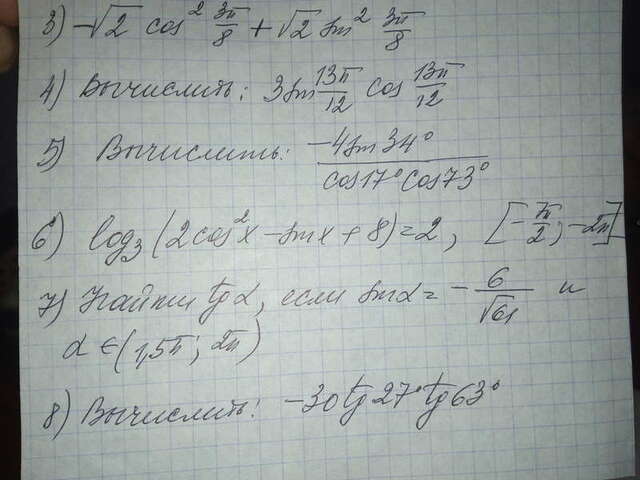 3) -√2 cos² 3π/8 + √2 sin² 3π/8
4) Вычислить: 3 sin 13π/12 cos 13π/12
5) Вычислить: -4 sin 34° / cos 17° cos 73°
6) log₃ (2cos²x - sin x + 8) = 2, [-π/2; -2π]
7) Найти tg α, если sin α = - 6/√61 и
α ∈ (1,5π; 2π)
8) Вычислить: -30 tg 27° tg 63°